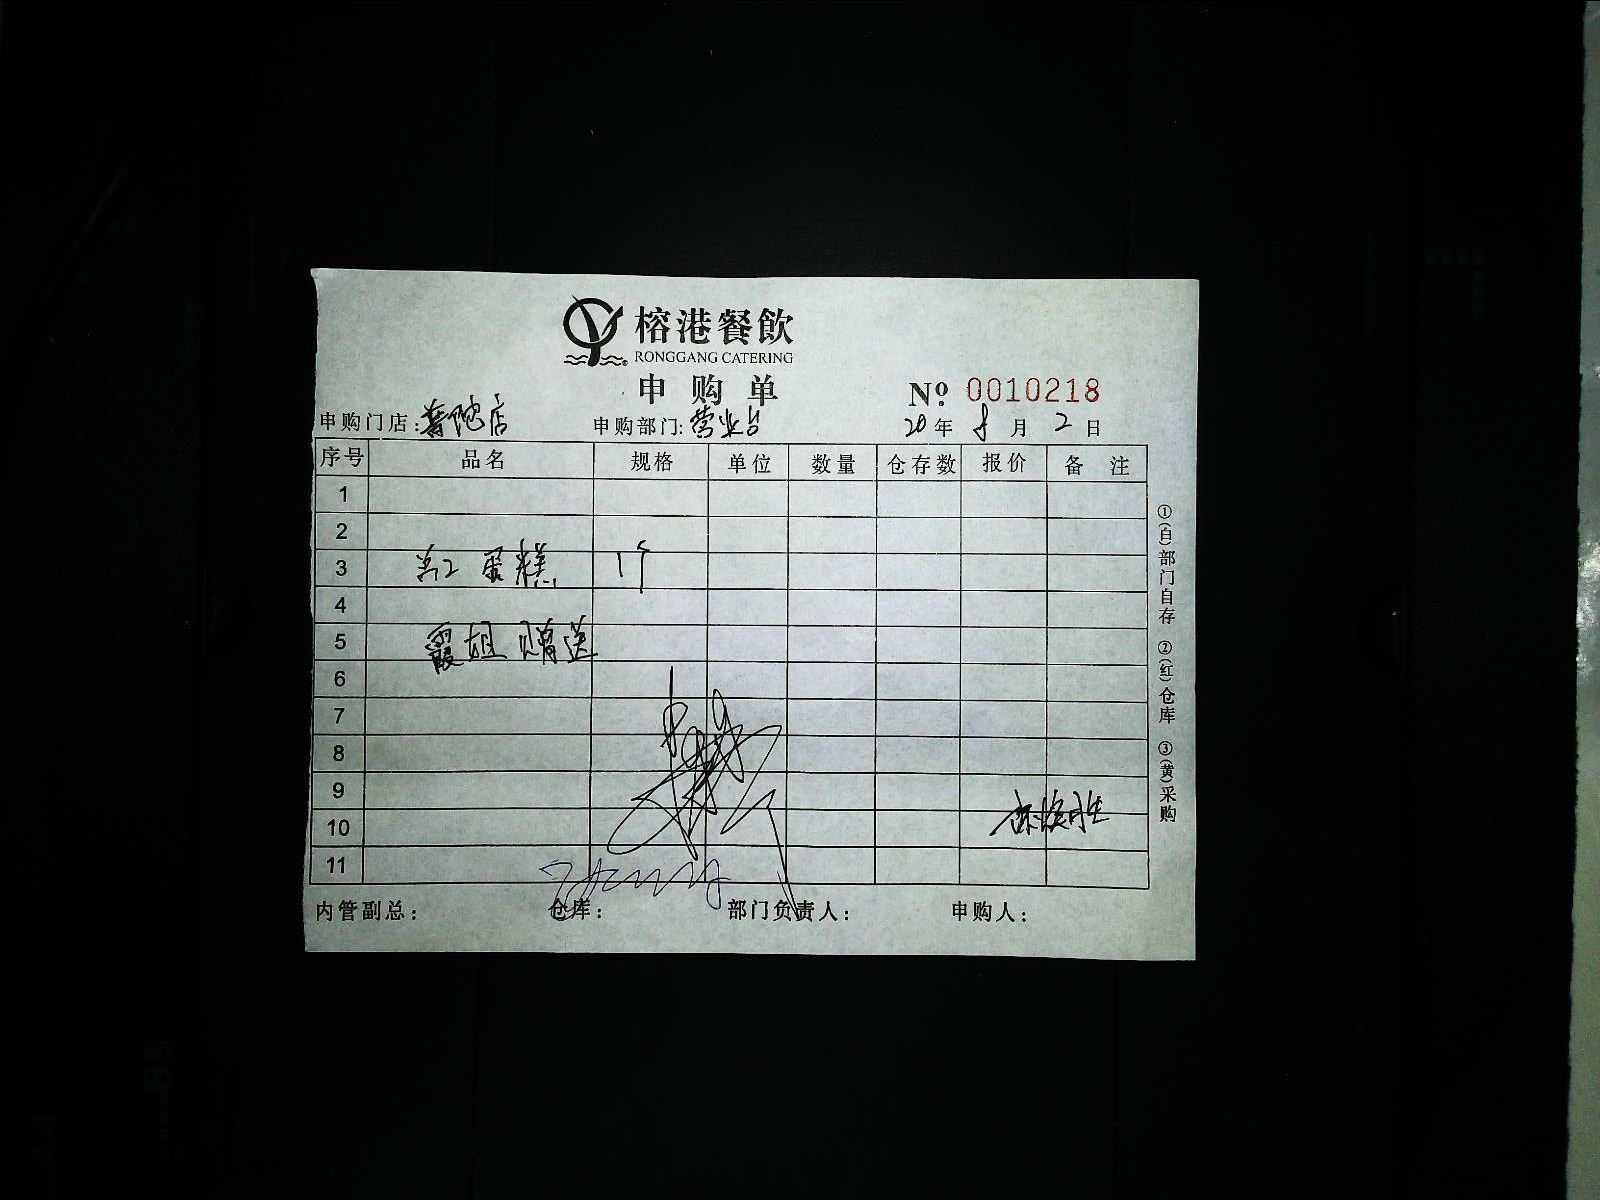 榕港餐飲
RONGGANG CATERING
申购单
Nº: 0010218
申购门店:普陀店 申购部门:营业台 20年 8月 2日
序号 品名 规格 单位 数量 仓存数 报价 备注
1
2
3 蛋糕 1个
4
5 霞姐 赠送
6
7
8
9
10
11
内管副总: 仓库: 部门负责人: 申购人:
①(白)部门自存 ②(红)仓库 ③(黄)采购